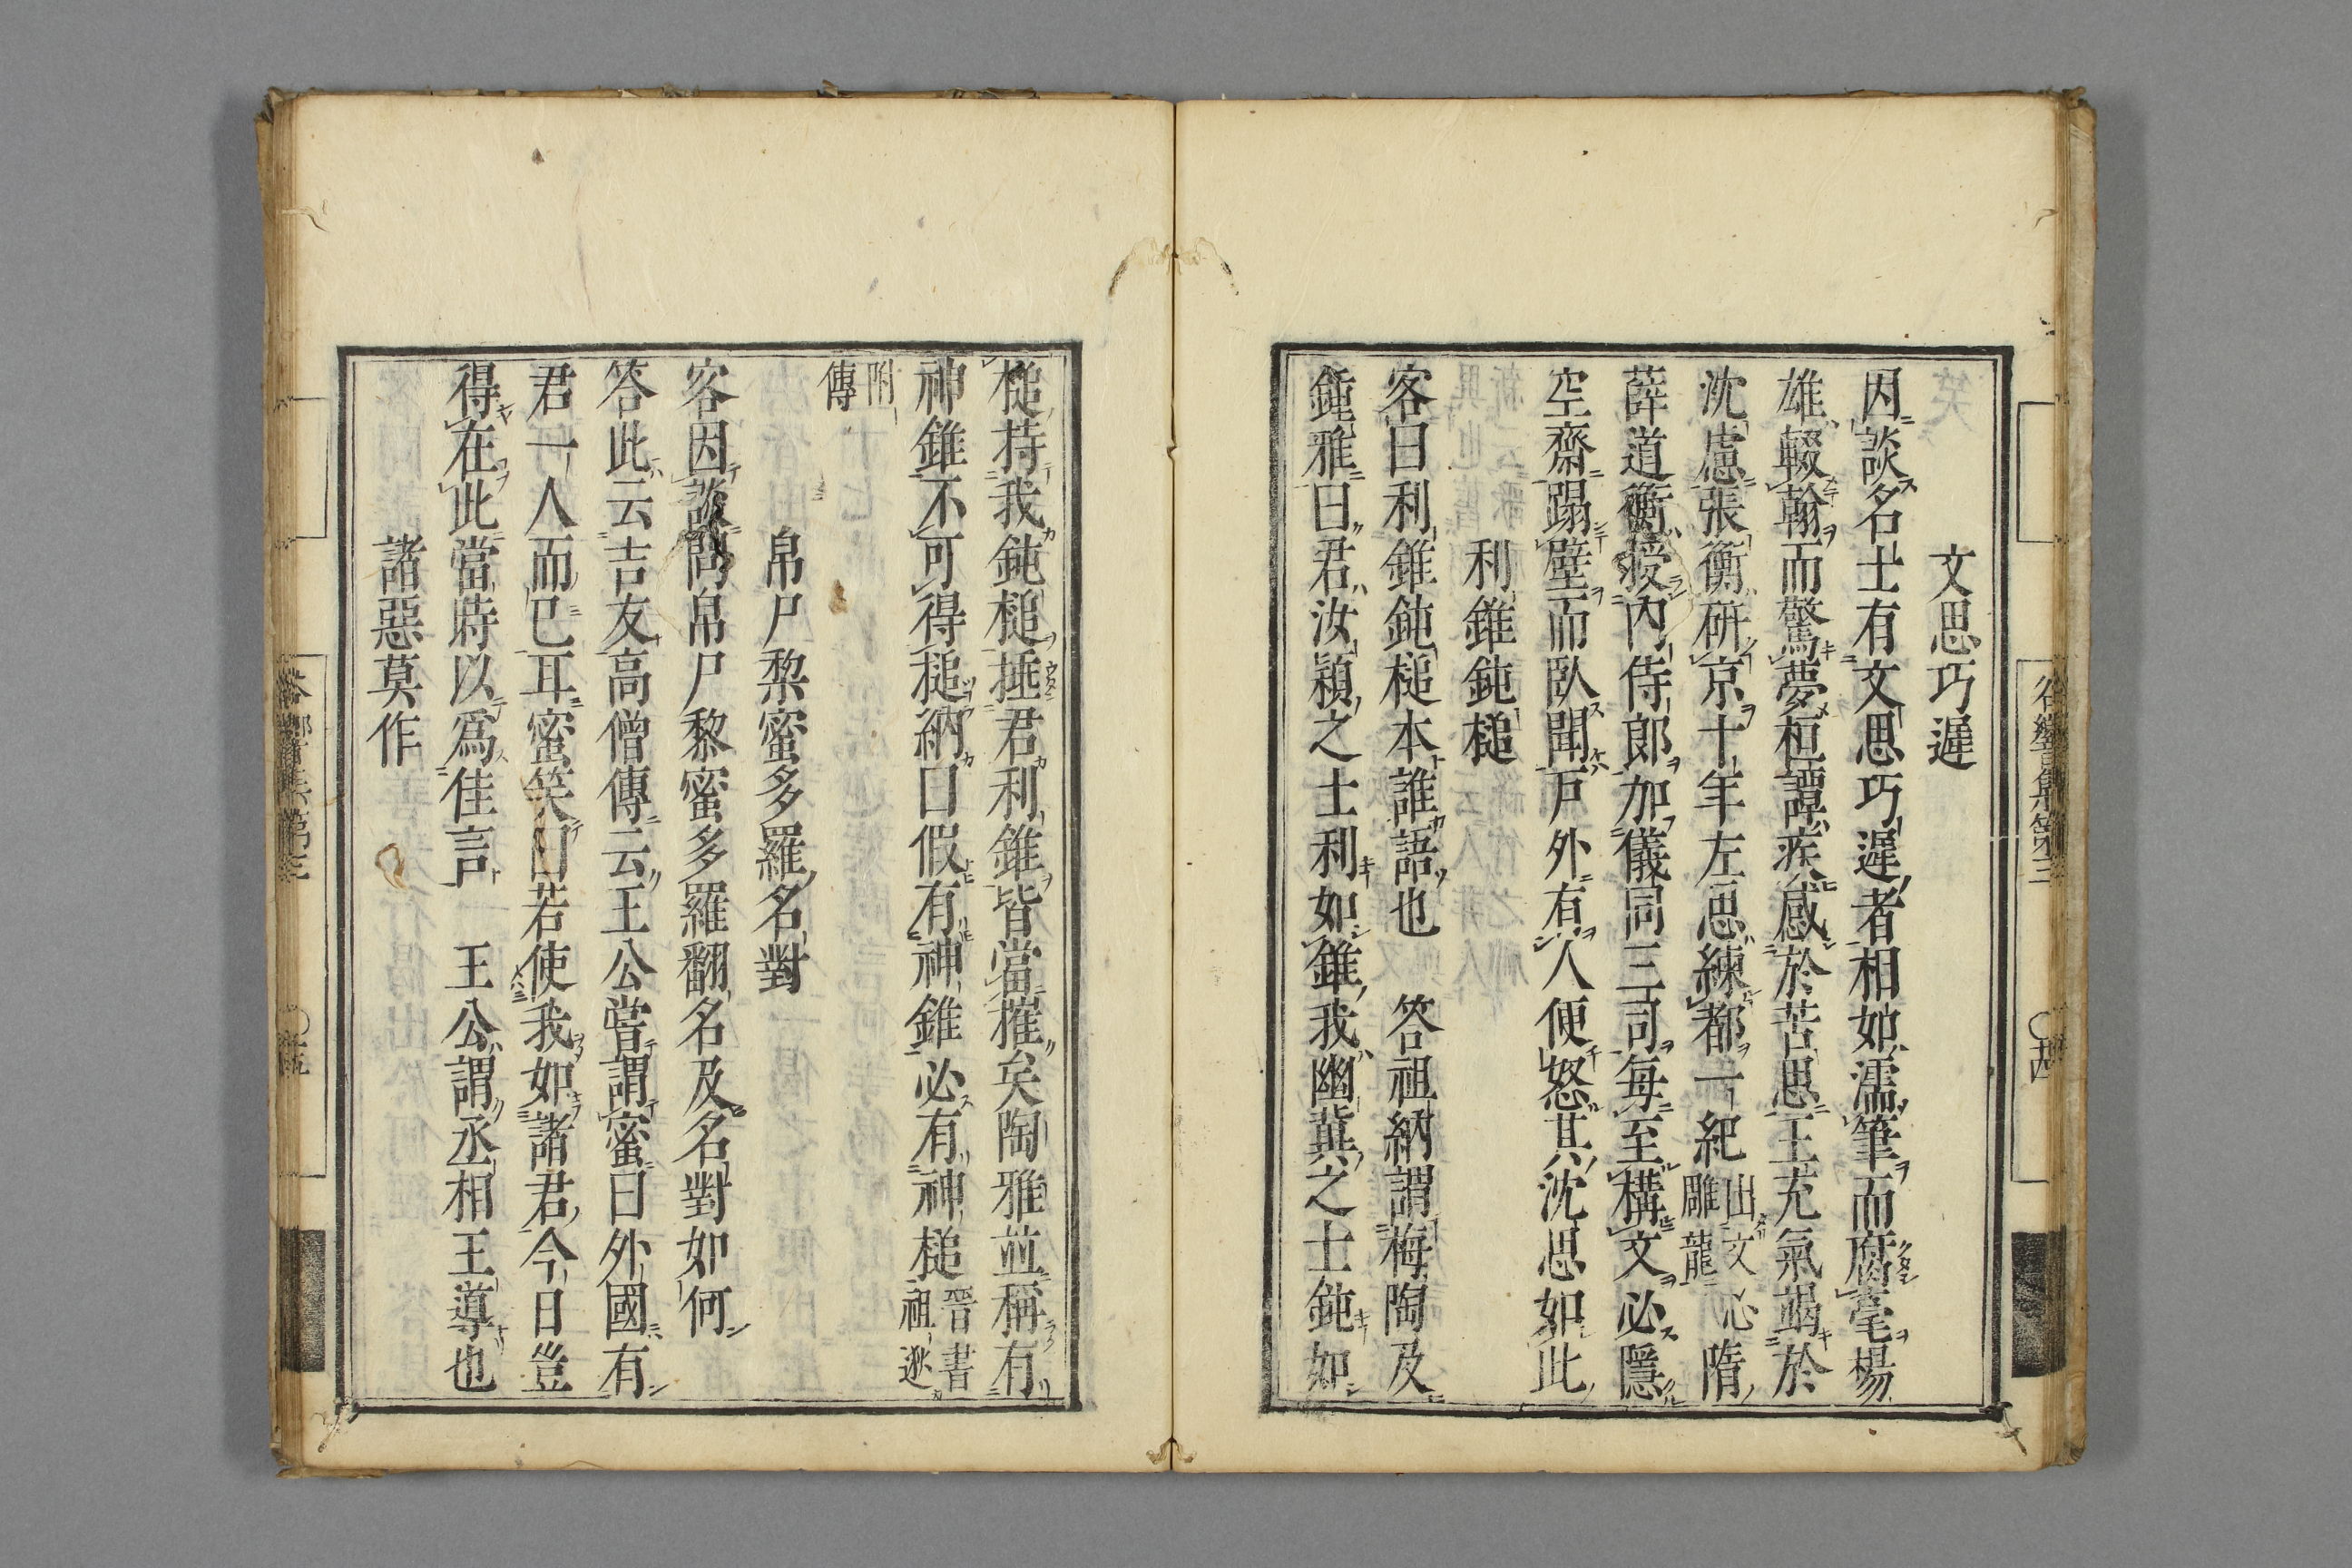 文思巧遲
因談名士有文思巧遲者相如濡筆而腐毫楊
雄輟翰而驚夢桓譚疾感於苦思王充氣竭於
沈慮張衡研京十年左思練都一紀出文心雕龍隋
薛道衡授內侍郎加儀同三司每至構文必隱
空齋蹋壁而臥聞戸外有人便怒其沈思如此
利錐鈍槌
客曰利錐鈍槌本誰語也　答祖納謂梅陶及
鍾雅曰君汝穎之士利如錐我幽冀之士鈍如
槌持我鈍槌捶君利錐皆當摧矣陶雅並稱有
神錐不可得槌納曰假有神錐必有神槌晉書祖逖
附傳
帛尸梨蜜多羅名對
客因談問帛尸黎蜜多羅翻名及名對如何
答此云吉友高僧傳云王公嘗謂蜜曰外國有
君一人而已耳蜜笑曰若使我如諸君今日豈
得在此當時以為佳言　王公謂丞相王導也
諸惡莫作